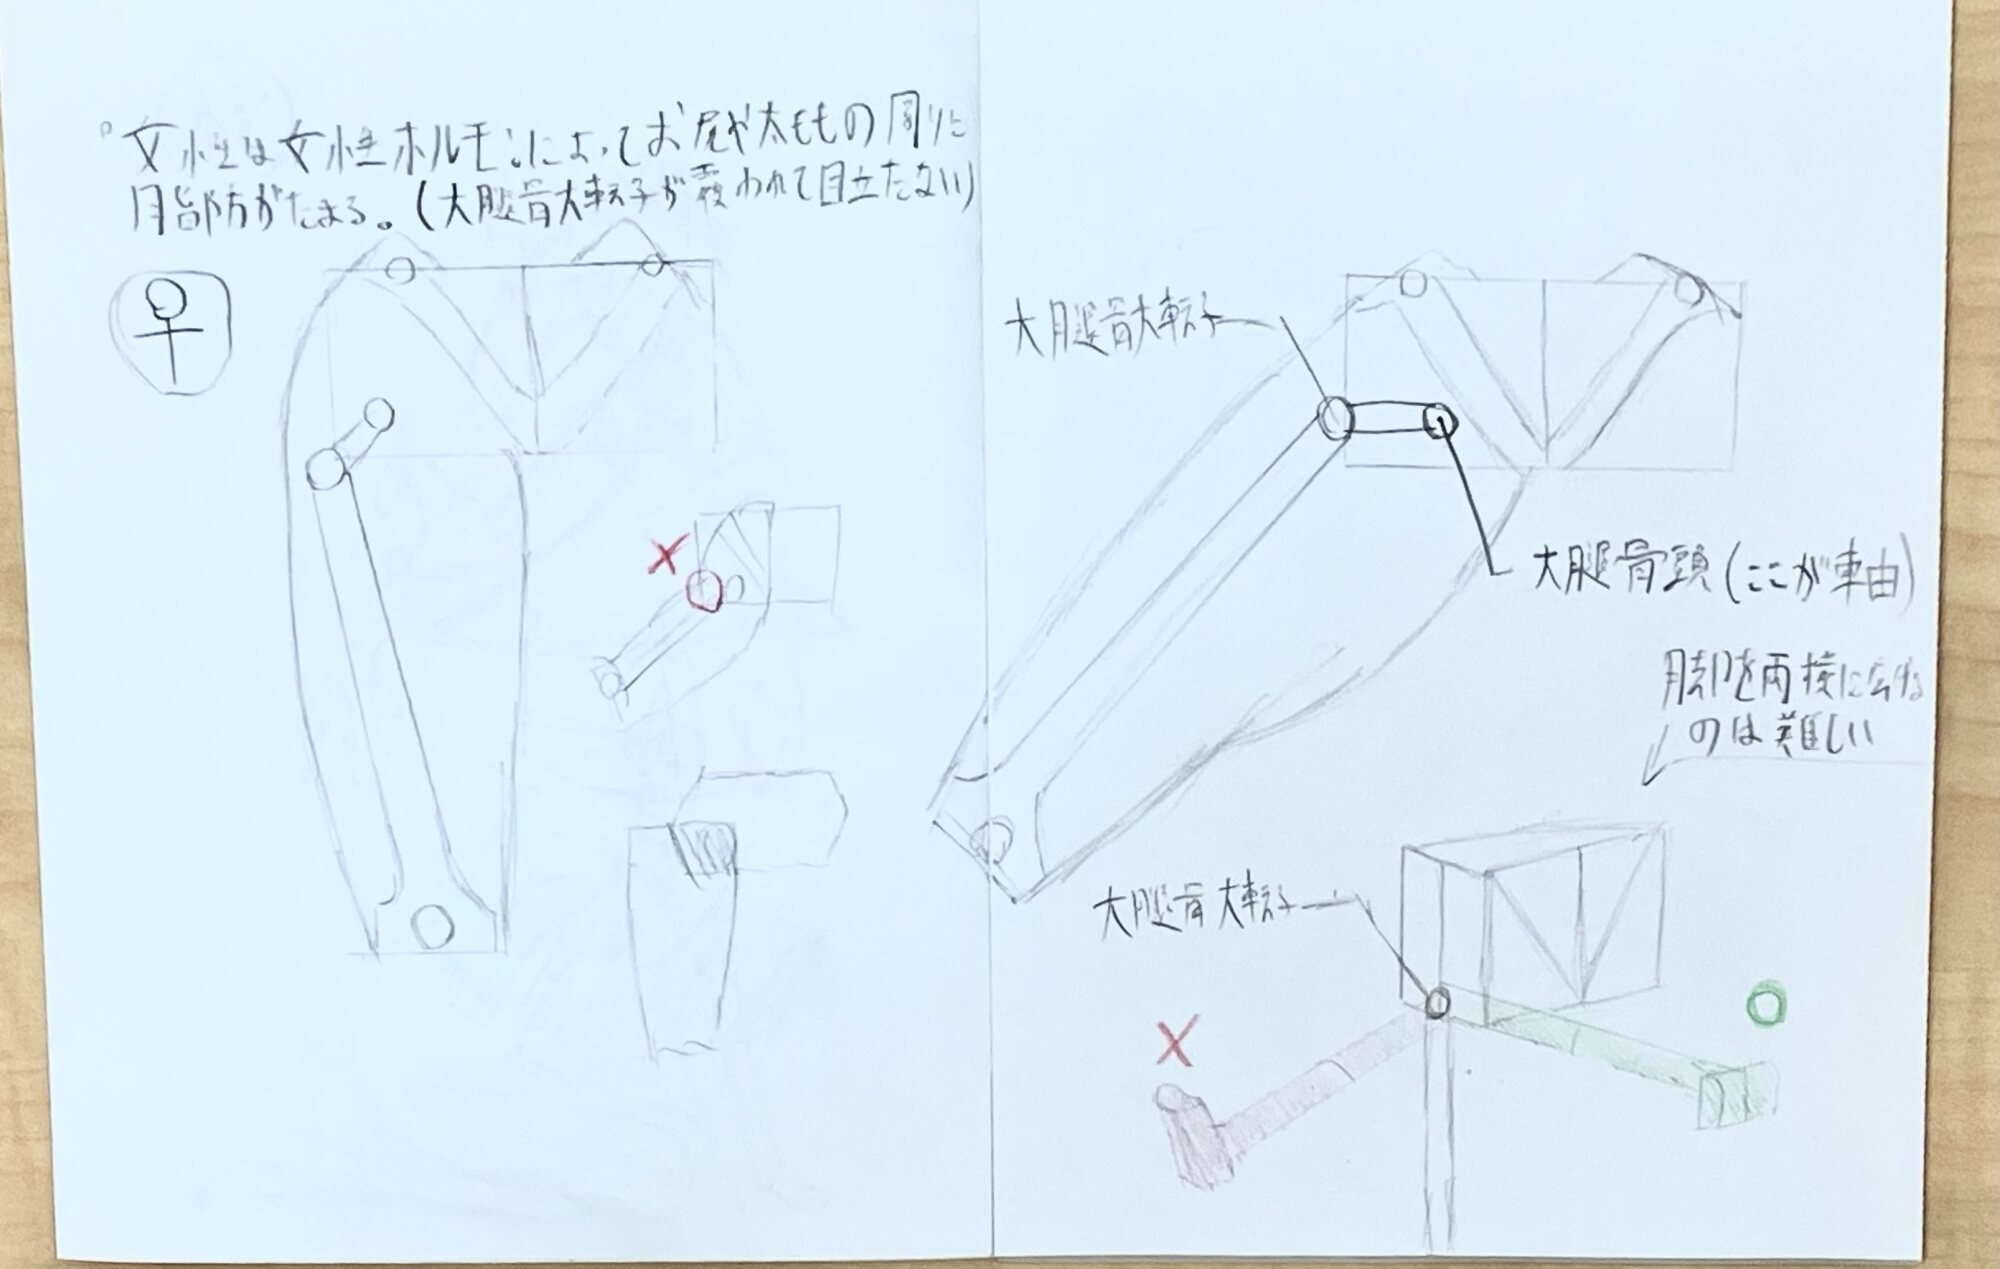 女性は女性ホルモンによってお尻や太ももの周りに
脂肪がたまる。(大腿骨大転子が覆われて目立たない)
大腿骨大転子
大腿骨頭(ここが車由)
脚を両横に広げる
のは難しい
大腿骨大転子